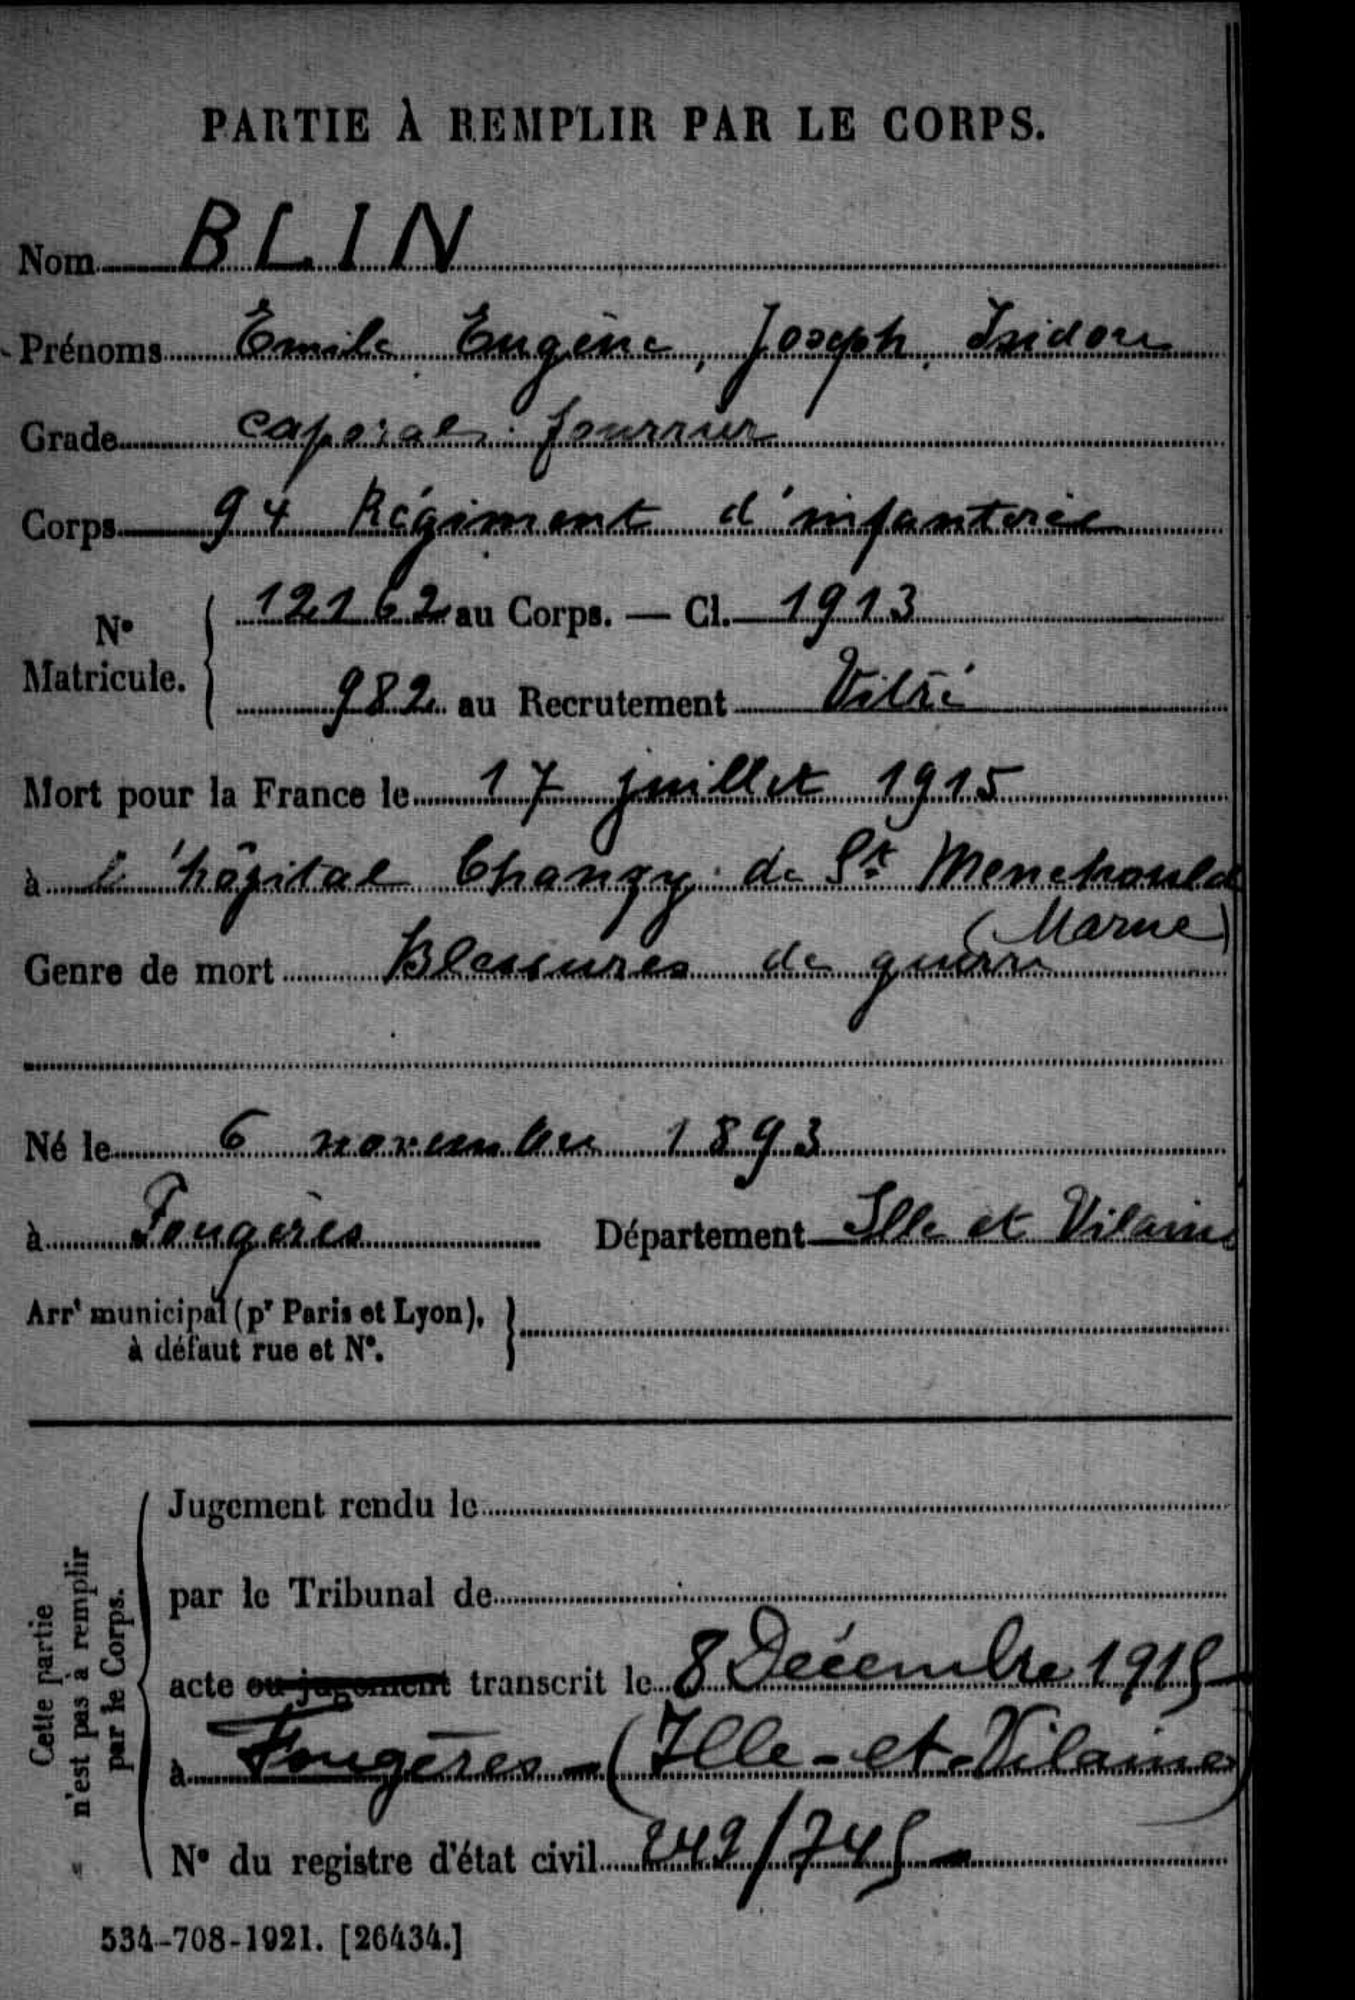 PARTIE À REMPLIR PAR LE CORPS.
Nom BLIN
Prénoms Emile Eugène, Joseph, Isidore
Grade caporal fourrier
Corps 94 Régiment d'infanterie
N° Matricule. 12162 au Corps. — Cl. 1913
982 au Recrutement Vitré
Mort pour la France le 17 juillet 1915
à l'hôpital Chanzy de Ste Menehould
(Marne)
Genre de mort Blessures de guerre
Né le 6 novembre 1893
à Fougères Département Ille et Vilaine
Arrt municipal (pr Paris et Lyon),
à défaut rue et N°.
Cette partie
n'est pas à remplir
par le Corps.
Jugement rendu le
par le Tribunal de
acte ou jugement transcrit le 8 Décembre 1915
à Fougères - (Ille-et-Vilaine)
N° du registre d'état civil 242/745
534-708-1921. [26434.]